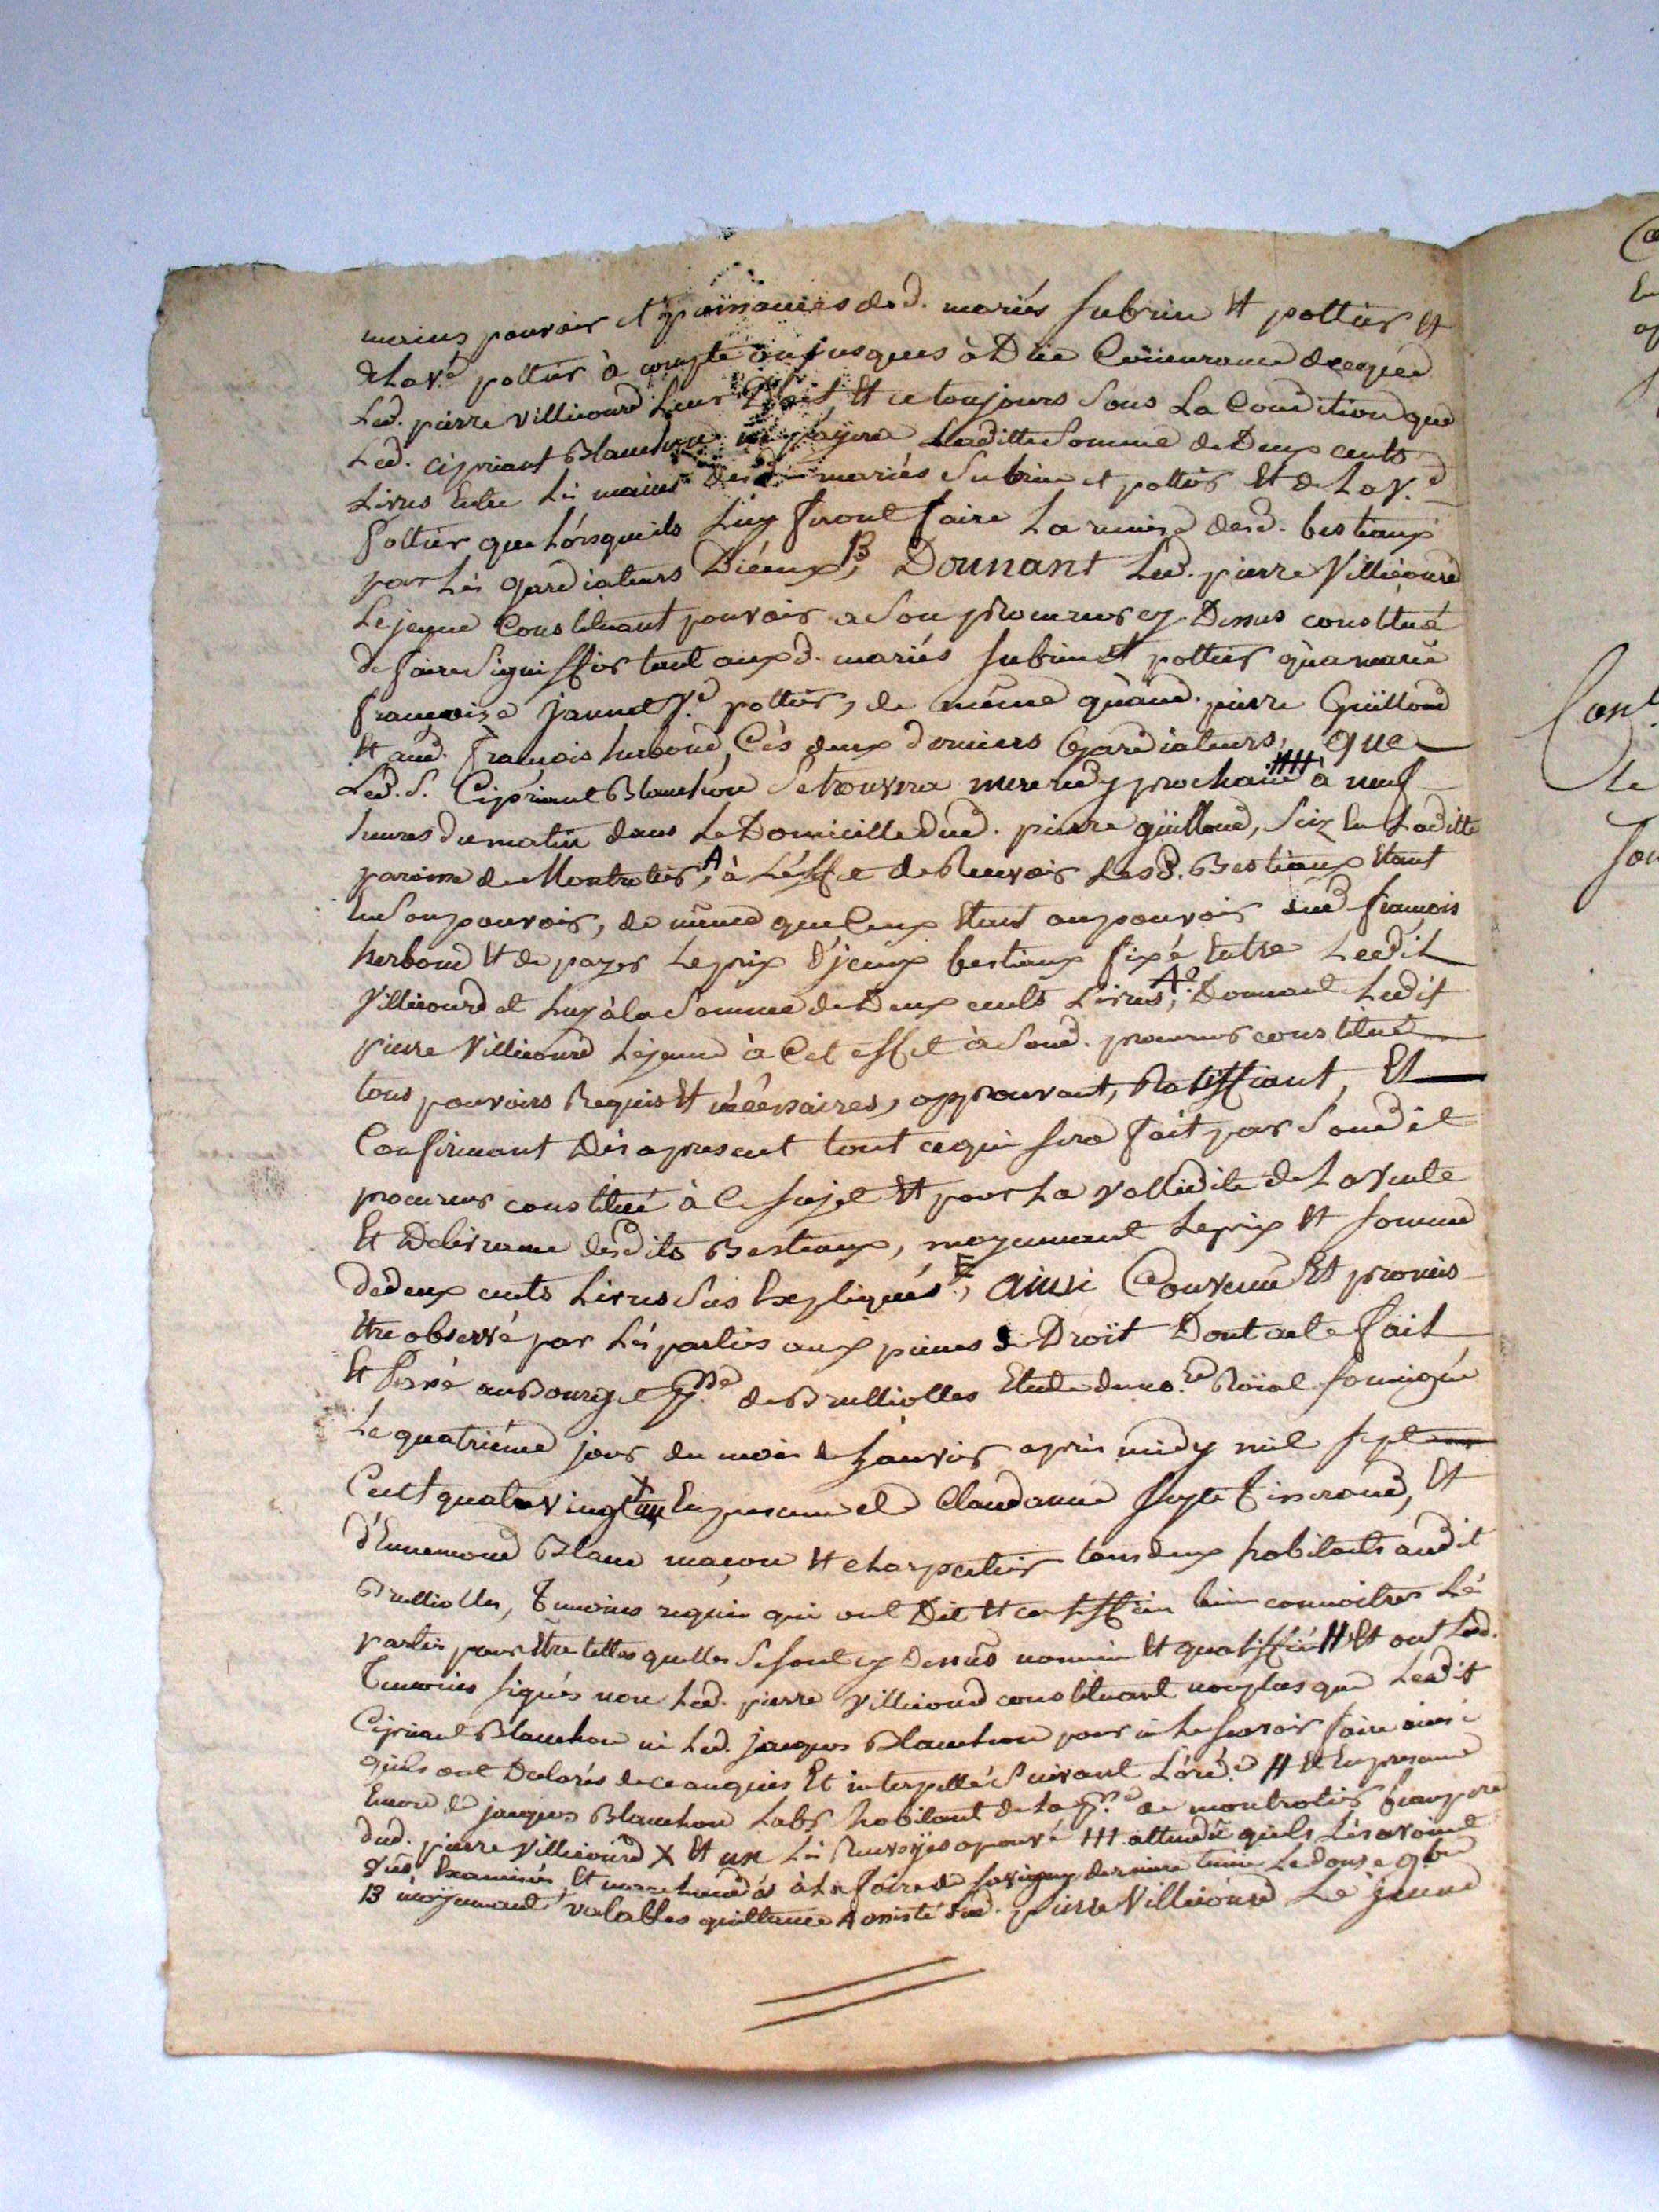 mains pouvoir et puissances desd. mariés subrin et pottier et
de la ve. pottier à compte ou jusques à Düe Concurrance de ce que
Led. pierre villecourd Leur Doit, et ce toujours sous La Condition que
Led. cipriant Blanchon ne payera Laditte somme de Deux cents
Livres Entre Les mains desd. mariés subrin et pottier et de La Ve.
Pottier que Lorsqu'ils Luy feront faire La remise desd. bestiaux
par Les gardiateurs D'iceux, B Donnant Led. pierre Villecourd
Le jeune Constituant pouvoir a son procureur cy Dessus constitué
de faire signiffier tant auxd. mariés subrin et pottier qu'a marie
françoise jannet Ve. pottier, de même qu'aud. pierre Guillond
et aud. françois herboud, Ces deux derniers Gardiateurs, que
Led. S. Cipriant Blanchon se trouvera mercredy prochain HH à neuf
heures du matin dans Le Domicille dud. pierre güilloud, Siz En Laditte
paroisse de Montrotier, A à L'éffet de Recevoir Lesd. Bestiaux étant
En son pouvoir, de même que Ceux étant au pouvoir dud. françois
herboud et de payer Le prix d'jceux bestiaux fixé Entre Ledit
Villecourd et Luy à la somme de Deux cents Livres, A² Donnant Ledit
pierre Villecourd Lejeune à Cet effet à Soud. procureur constitué
tous pouvoirs Requis et nécéssaires, approuvant, Ratiffiant, Et
Confirmant Dès apresent tout cequi sera fait par Soudit
procureur constitué à Ce sujet et pour La vallidite de La vente
Et Delivrance desdits Bestiaux, moyennant Le prix et somme
de deux cents Livres sus Expliqués, ainsi Convenu Et promis
être observé par Les parties aux peines de Droït Dont acte fait
et passé au Bourg et psse. de Brulliolles Etude du nore. Roïal soussigné
Le quatriéme jour du mois de janvier après midy mil sept
Cent quatrevingt X un En presence de Claudanne, et
d'Ennemond Blanc maçon et charpentier tous deux habitants audit
Brulliolles, Temoins requis qui ont Dit et certiffiés bien connoitre Les
parties pour être telles quelles se sont cy Dessus nommées et qualiffiées H et ont Lesd.
Temoins signés non Led. pierre Villecourd constituant nonplus que Ledit
Cipriant Blanchon ni Led. jacques Blanchon pour ne Le sçavoir faire ainsi
qu'ils ont Declarés de ce enquis Et interpellés suivant L'ordce. H et En presence
Encore de jacques Blanchon Labr habitant de La psse. de montrotier beaupere
dud. pierre Villecourd X et un Les Renvoyés aprouvé HH attendu qu'ils Les avoient
vus Examinés et marchandés à La foire de savigny derniere tenüe Le douze 9bre
B moÿennant valables quittance A assisté dud. pierre Villecourd Le jeune